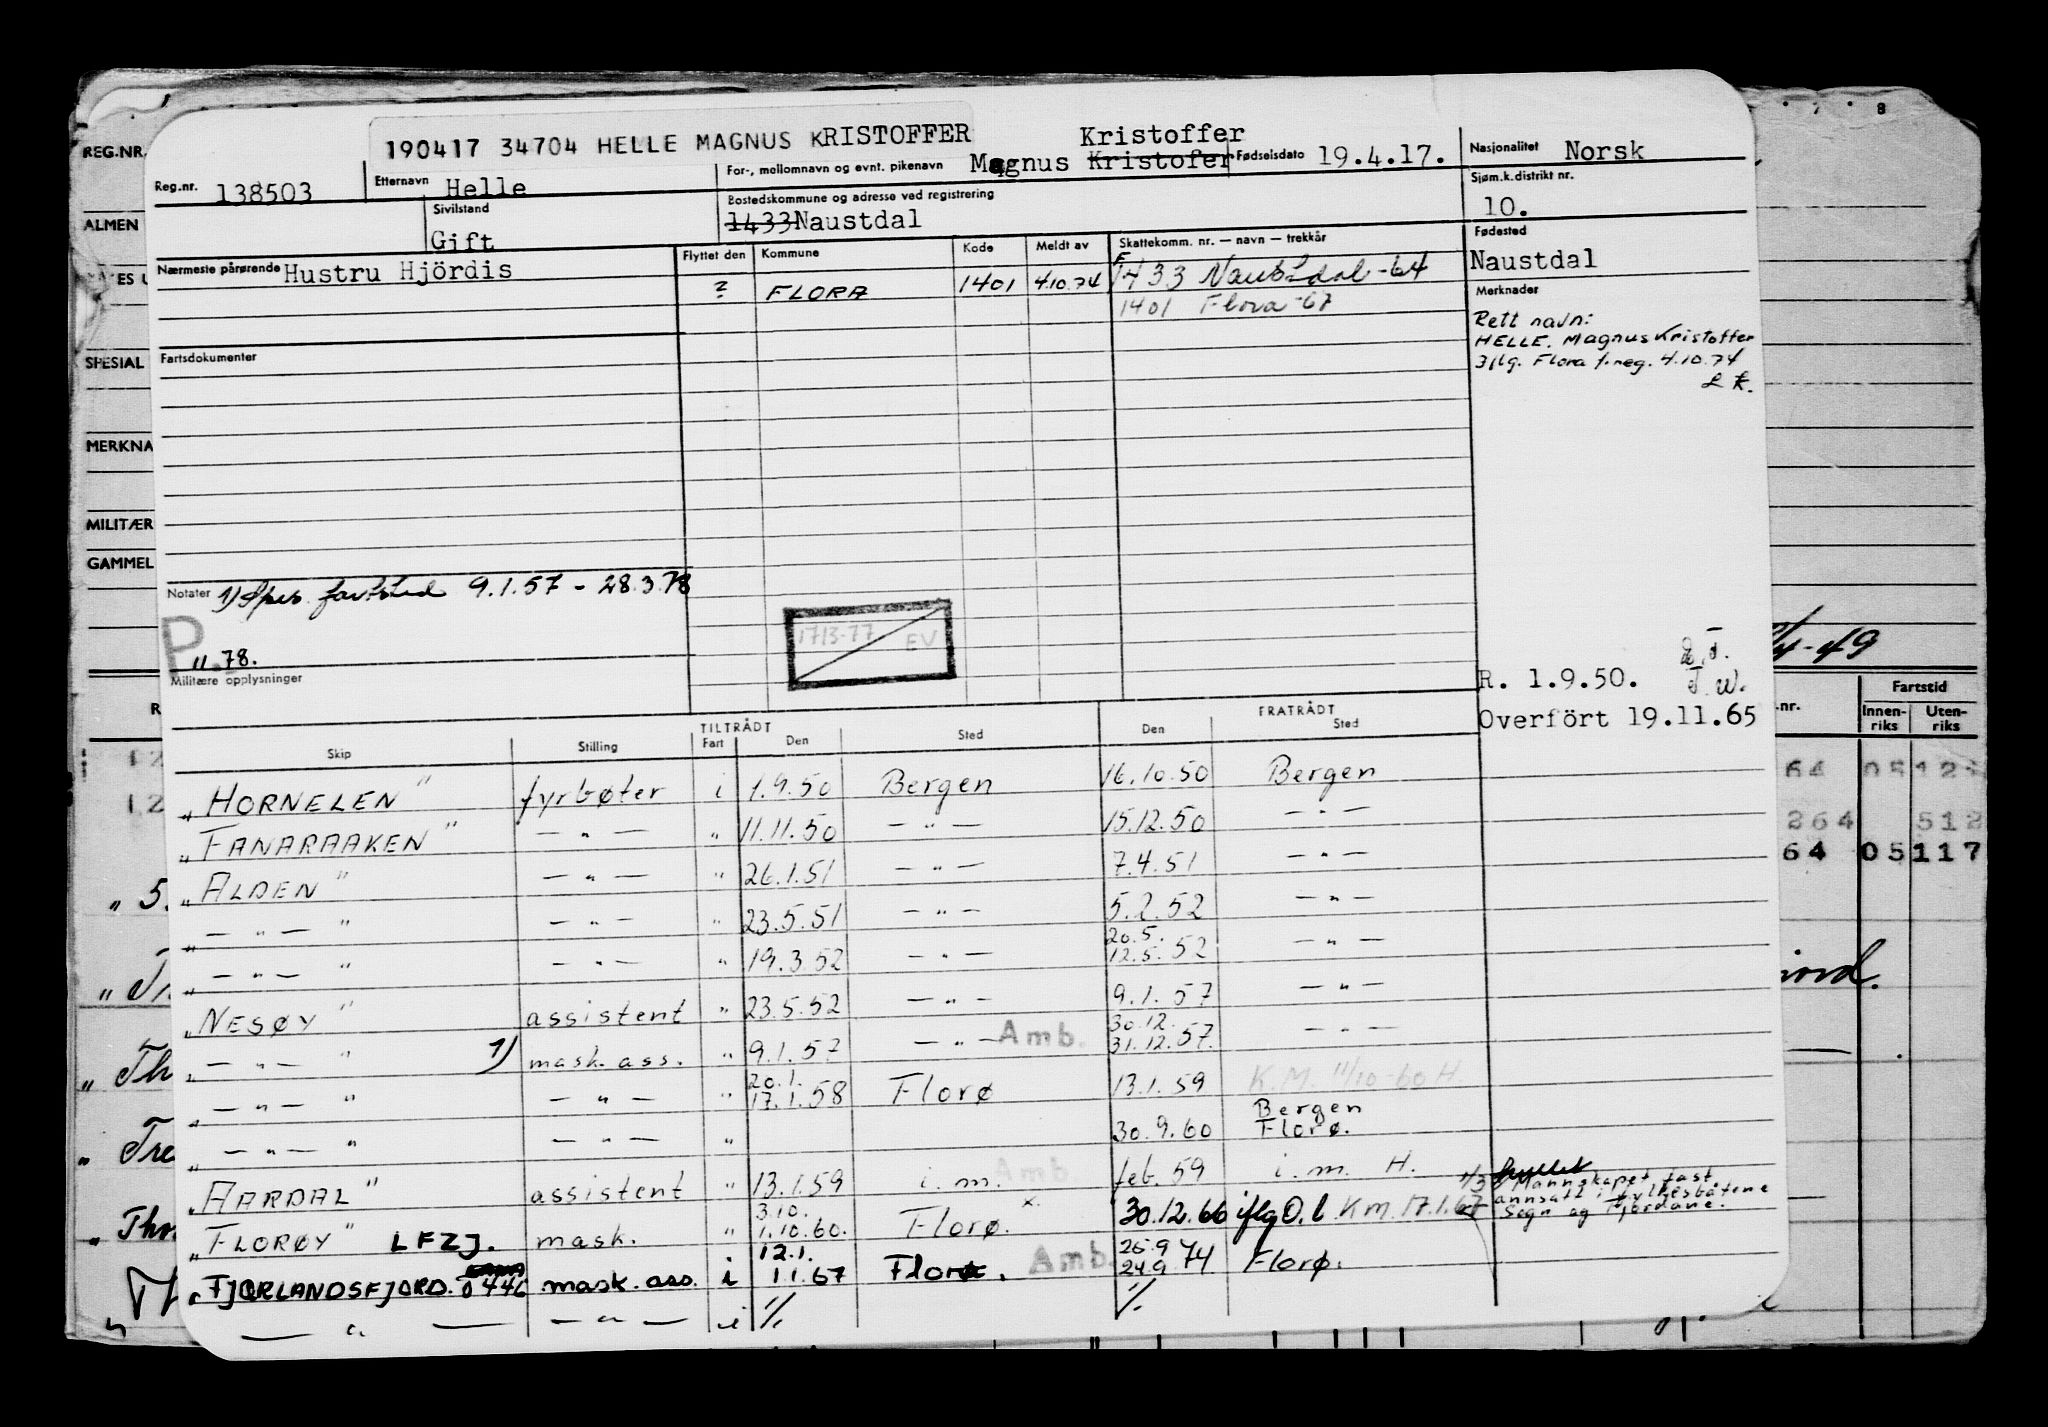 190417 34704 HELLE MAGNUS KRISTOFFER
Reg.nr. 138503
Etternavn Helle
For-, mellomnavn og evnt. pikenavn Magnus Kristofer Kristoffer
Fødselsdato 19.4.17.
Nasjonalitet Norsk
Sivilstand Gift
Bostedskommune og adresse ved registrering
1433 Naustdal
Sjøm.k.distrikt nr.
10.
Nærmeste pårørende Hustru Hjördis
Flyttet den Kommune Kode Meldt av Skattekomm. nr. — navn — trekkår
? FLORA 1401 4.10.74 1433 Naustdal -64
1401 Flora -67
Fødested
Naustdal
Merknader
Rett navn:
HELLE, Magnus Kristoffer
Iflg. Flora f.reg. 4.10.74
Fartsdokumenter
Notater 1) Spes. fartstid 9.1.57 - 28.3.78
P
11.78.
1713-77 EV
Militære opplysninger
R. 1.9.50.
Overfört 19.11.65
TILTRÅDT FRATRÅDT
Skip Stilling Fart Den Sted Den Sted
„HORNELEN" fyrbøter i 1.9.50 Bergen 16.10.50 Bergen
„FANARAAKEN" — " — " 11.11.50 — " — 15.12.50 — " —
„ALDEN" — " — " 26.1.51 — " — 7.4.51 — " —
„ — " — " — " — " 23.5.51 — " — 5.2.52 — " —
„ — " — " — " — " 19.3.52 — " — 20.5. 12.5.52 — " —
„NESØY" assistent " 23.5.52 — " — 9.1.57 — " —
„ — " — " 1) mask. ass. " 9.1.57 — " — Amb. 30.12. 31.12.57. — " —
„ — " — " — " — " 20.1. 17.1.58 Florø 13.1.59 K.M. 11/10-60 H.
„ — " — " — " — " 30.9.60 Bergen Florø.
„AARDAL" assistent " 13.1.59 i.m. Amb feb. 59 i.m. H.
„FLORØY" LFZJ. mask. " 3.10. 1.10.60. Florø. x. 30.12.66 iflg O.l. K.M. 17.1.67
„FJÆRLANDSFJORD. 0446 mask. ass. i 12.1. 1.1.67 Florø. Amb. 25.9 24.9 74 Florø.
— " — — " — i 1/1 1/1
Mannskapet fast
annsatt i fylkesbåtene
Sogn og Fjordane.
REG.NR.
ALMEN
SPESIAL
MERKNA
MILITÆR
GAMMEL
8
/4-49
.nr.
Fartstid
Innenriks Utenriks
64 05
264 512
64 05 117